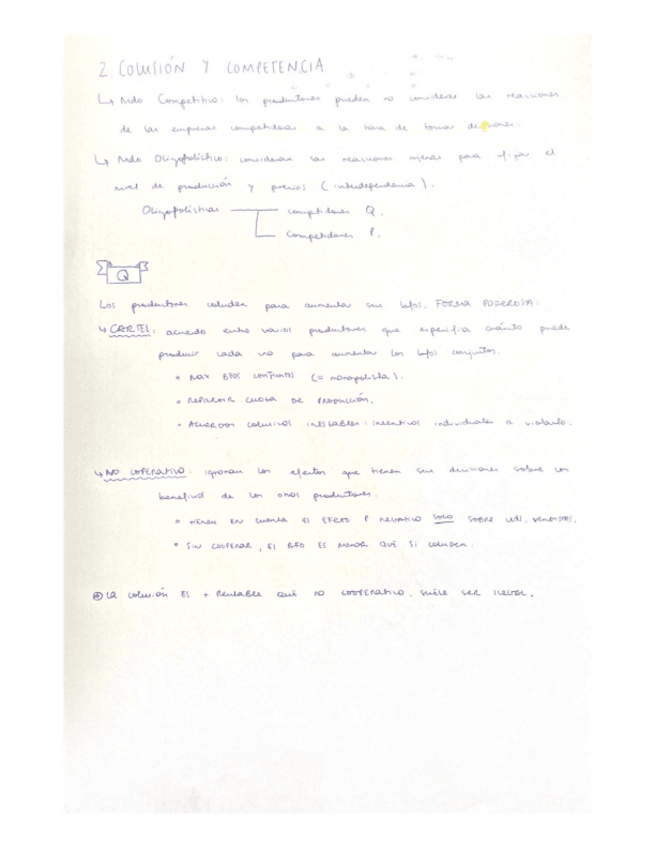 2. COLUSIÓN Y COMPETENCIA
↳ Mdo Competitivo: los productores pueden no considerar las reacciones
de las empresas competidoras a la hora de tomar decisiones.
↳ Mdo Oligopolístico: consideran las reacciones ajenas para fijar el
nivel de producción y precios (interdependencia).
Oligopolistas competidores Q.
competidores P.
Q
Los productores coluden para aumentar sus bfos. FORMA PODEROSA:
↳ CARTEL: acuerdo entre varios productores que especifica cuánto puede
producir cada uno para aumentar los bfos conjuntos.
• MAX BFOS CONJUNTOS (= monopolista).
• REPARTIR CUOTA DE PRODUCCIÓN.
• ACUERDOS COLUSIVOS INESTABLES: incentivos individuales a violarlo.
↳ NO COPERATIVO: ignoran los efectos que tienen sus decisiones sobre los
beneficios de los otros productores.
• TIENEN EN CUENTA El EFECTO P NEGATIVO SOLO SOBRE uds. VENDIDAS.
• SIN COOPERAR, El BFO ES MENOR QUE SI COLUDEN.
LA colusión ES + Rentable QUE NO COOPERATIVO. SUELE SER ILEGAL.